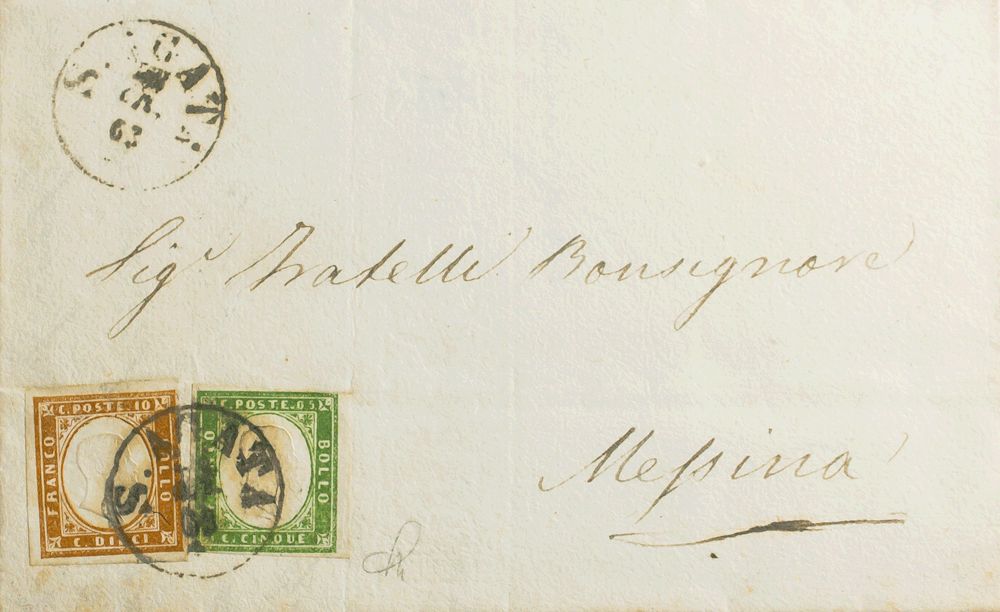 S. AGAT
63
Sig.ri Fratelli Bonsignore
Messina
C. POSTE. 10
FRANCO
BOLLO
C. DIECI
C. POSTE. 05
BOLLO
C. CINQUE
S. AGATA